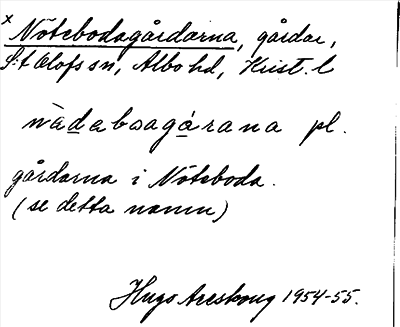 x Nötebodagårdarna, gårdar,
S:t Olofs sn, Albo hd, Krist. l
nàdaboagárana pl.
gårdarna i Nöteboda.
(se detta namn)
Hugo Areskoug 1954-55.